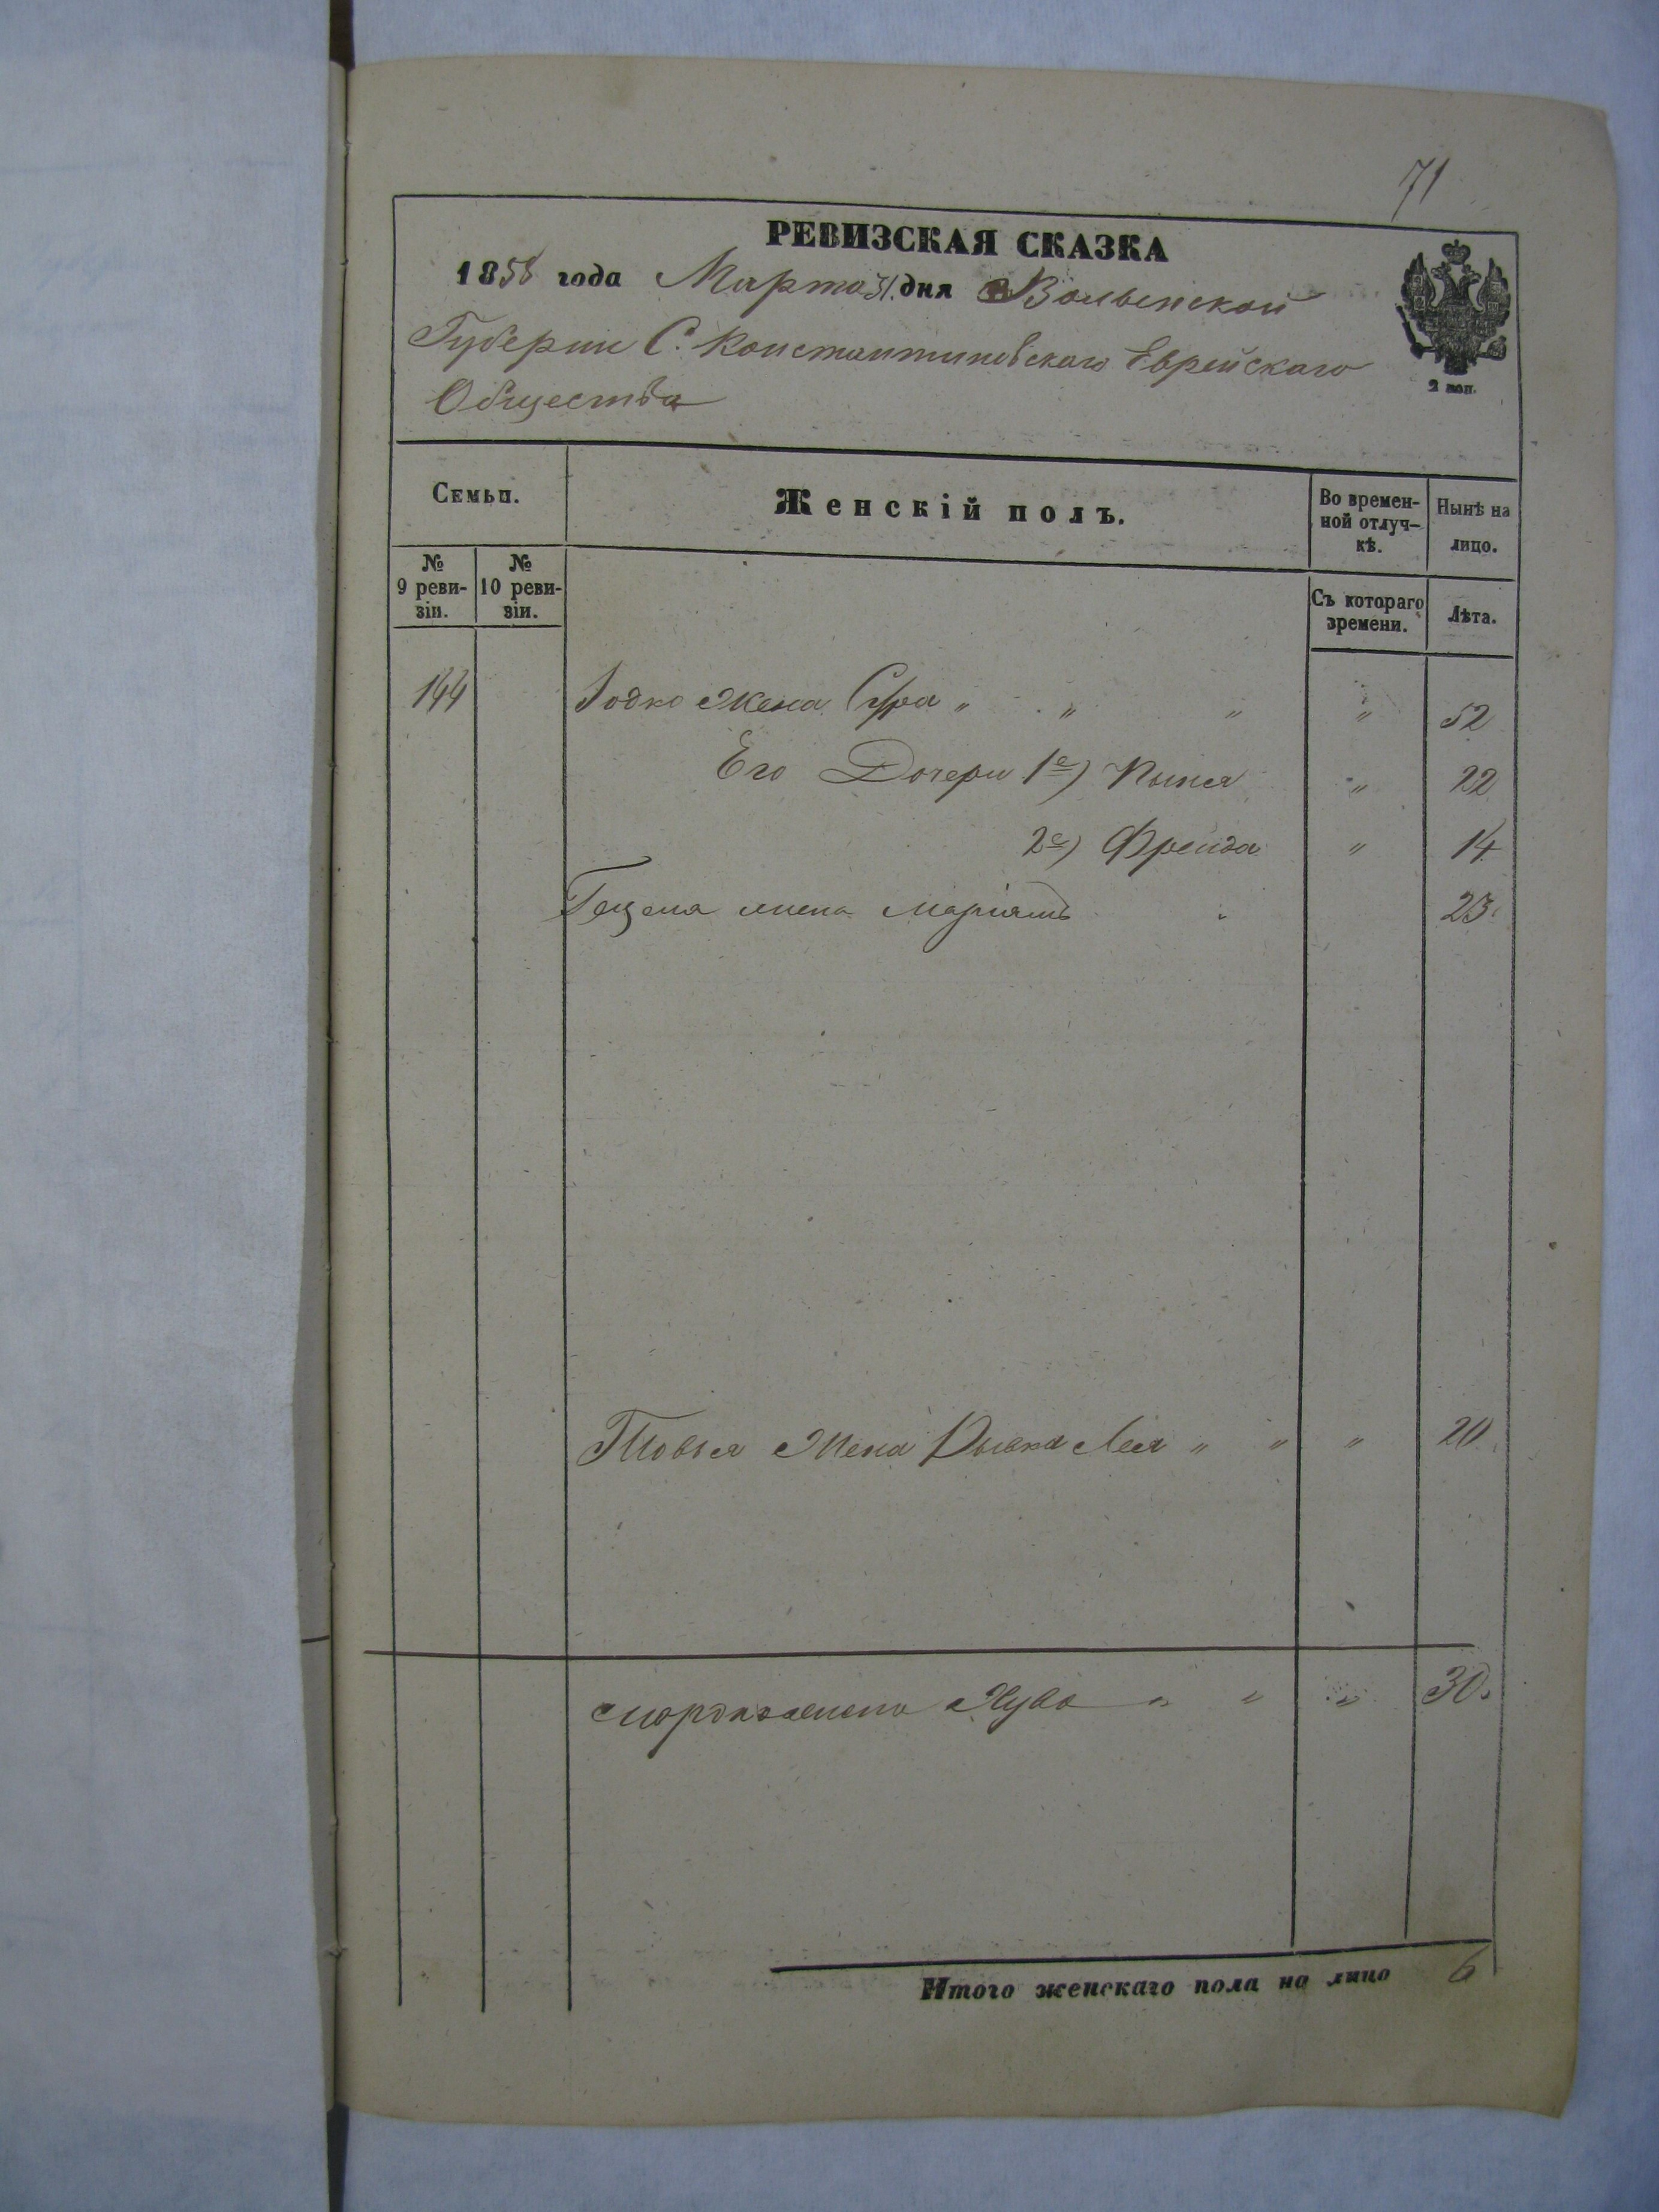 71
РЕВИЗСКАЯ СКАЗКА
1858 года Марта 31 дня Волынской
Губернии С. Константиновскаго Еврейскаго
Общества
2 коп.
Семьи.
Женскій полъ.
Во времен-
ной отлуч-
кѣ.
Нынѣ на
лицо.
№
9 реви-
зіи.
№
10 реви-
зіи.
Съ котораго
времени.
Лѣта.
144 Іодко Жена Сура " " " " 52
Его Дочери 1е) " 22
2е) Фрейда " 14
жена Маріямъ 23
Товья Жена Рывка Лея " " " 20
жена Хува " " " 30
Итого женскаго пола на лицо 6